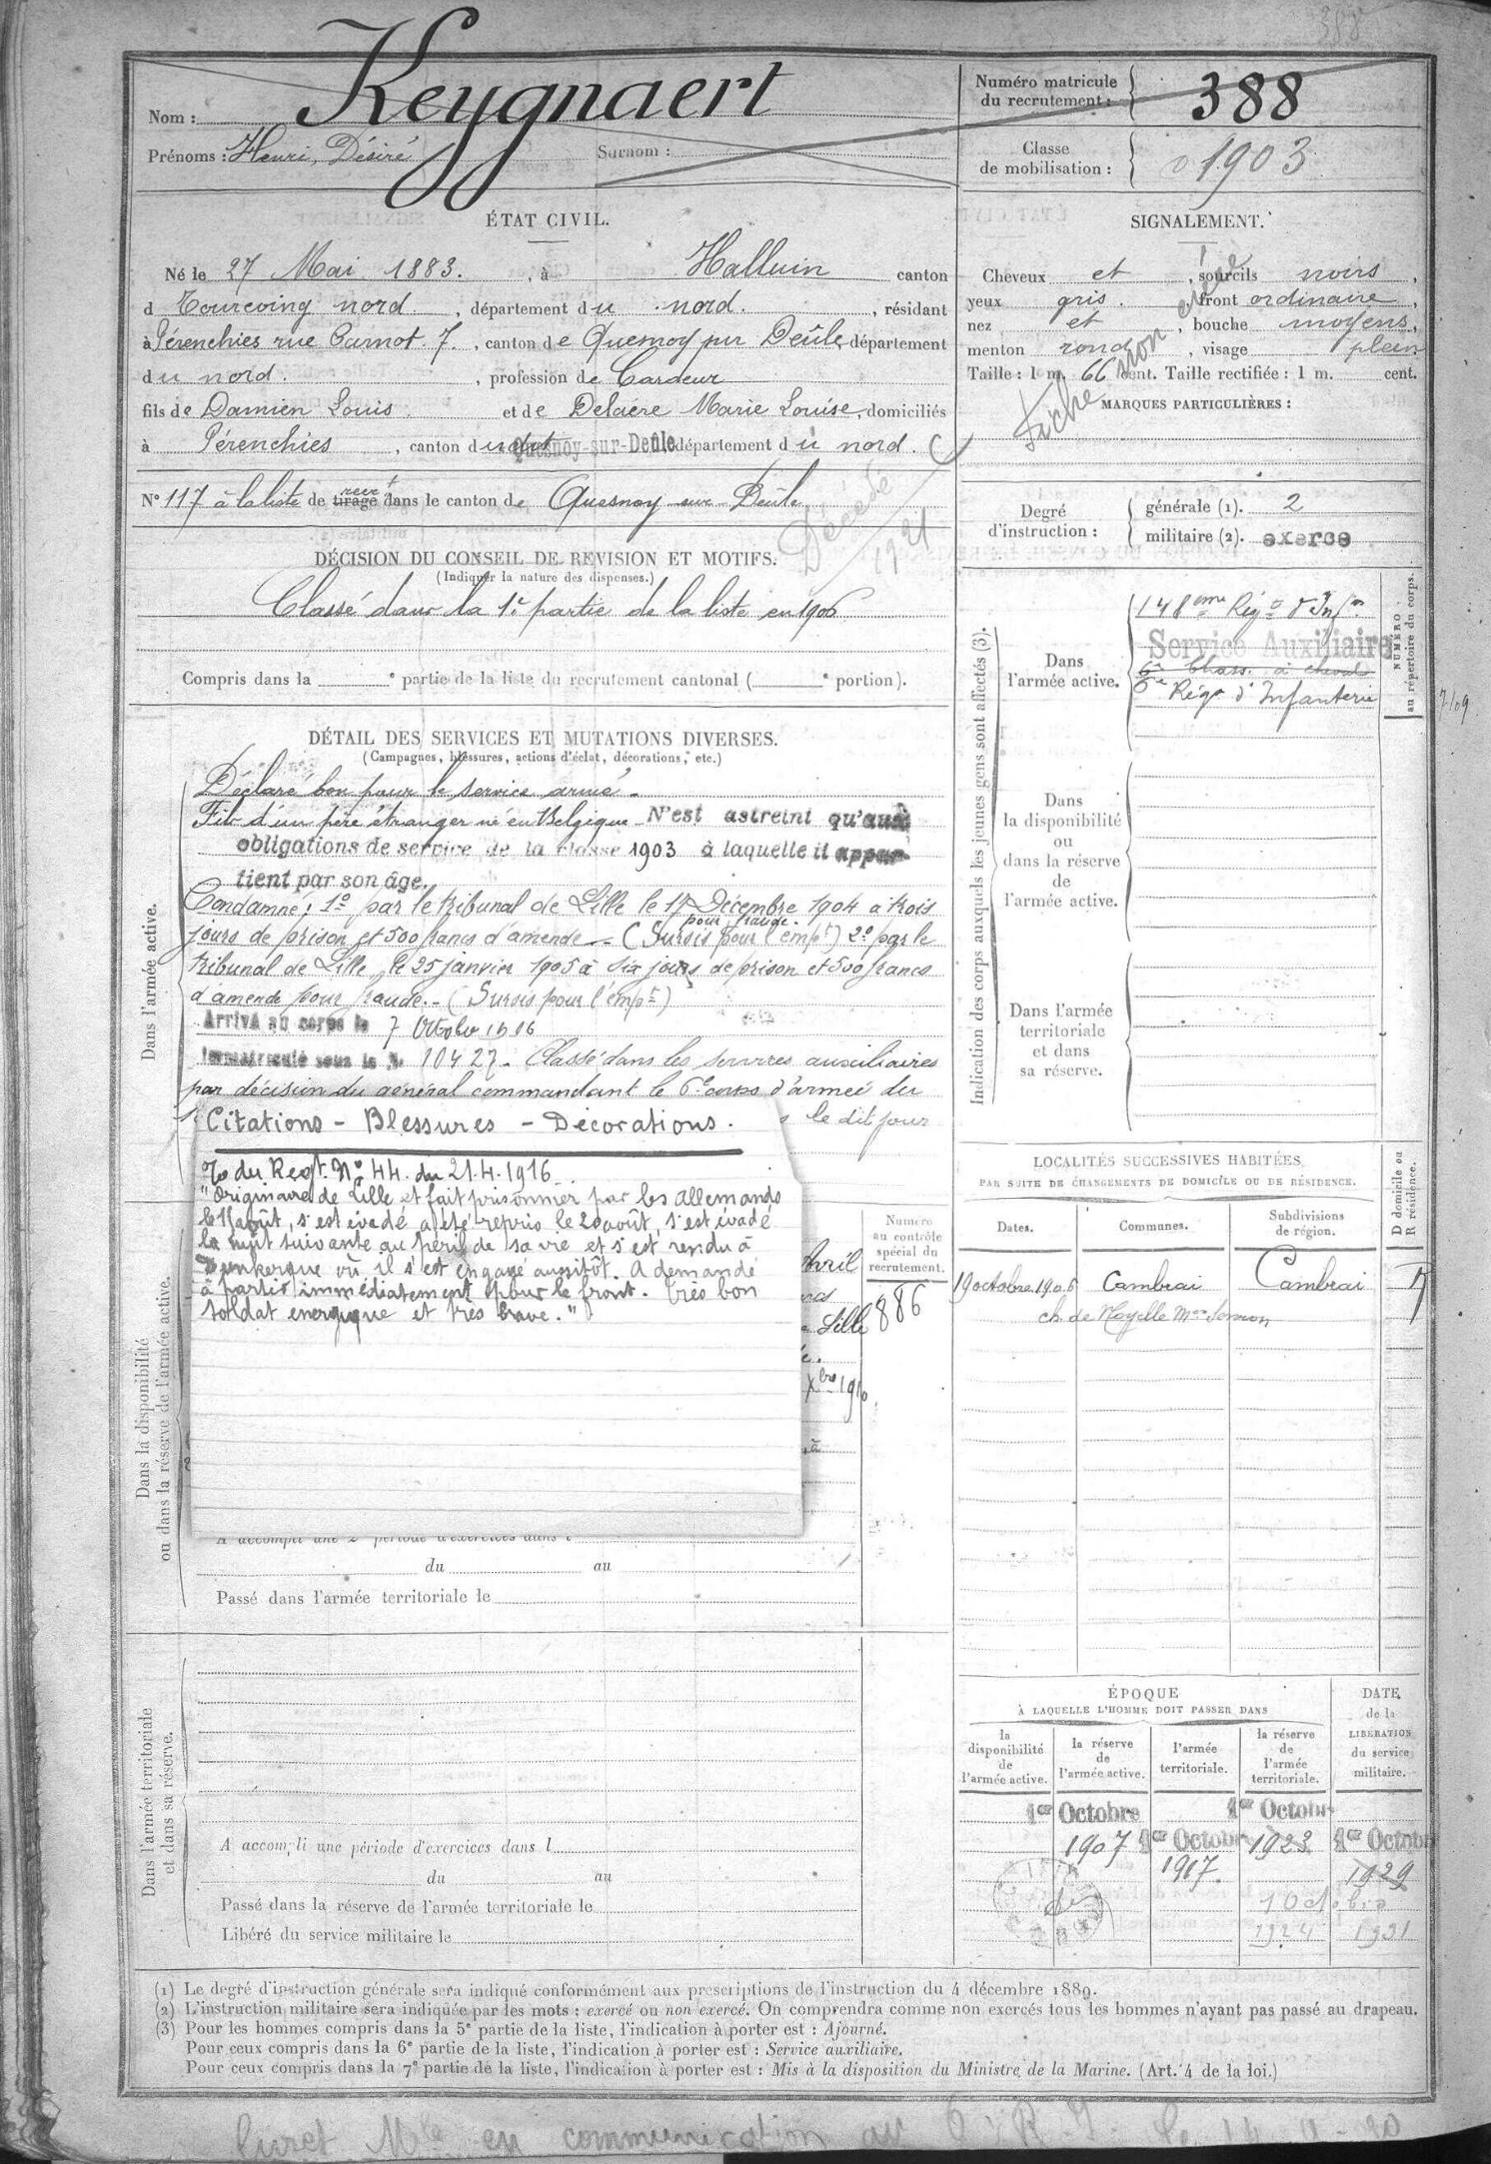 388
Nom : Keygnaert
Prénoms : Henri, Désiré Surnom :
Numéro matricule
du recrutement : 388
Classe
de mobilisation : 1903
ÉTAT CIVIL.
Né le 27 Mai 1883. , à Halluin canton
d Tourcoing nord. , département du nord. , résidant
à Pérenchies rue Carnot. 7. , canton de Quesnoy sur Deûle département
du nord. , profession de Cardeur
fils de Damien Louis et de Delaere Marie Louise, domiciliés
à Pérenchies , canton du dit Quesnoy-sur-Deûle département du nord.
N° 117 à la liste de tirage recrt dans le canton de Quesnoy sur Deûle
Décédé
1921
SIGNALEMENT.
Cheveux et , sourcils noirs ,
yeux gris. front ordinaire ,
nez et , bouche moyens,
menton rond , visage plein
Taille : 1 m. 66 cent. Taille rectifiée : 1 m. cent.
MARQUES PARTICULIÈRES :
Fiche non
Degré
d'instruction :
générale (1). 2
militaire (2). exercé
DÉCISION DU CONSEIL DE REVISION ET MOTIFS.
(Indiquer la nature des dispenses.)
Classé dans la 1e partie de la liste en 1906
Compris dans la e partie de la liste du recrutement cantonal ( e portion).
DÉTAIL DES SERVICES ET MUTATIONS DIVERSES.
(Campagnes, blessures, actions d'éclat, décorations, etc.)
Dans l'armée active.
Déclaré bon pour le service armé.
Fils d'un père étranger né en Belgique N'est astreint qu'aux
obligations de service de la classe 1903 à laquelle il appar-
tient par son âge.
Condamné : 1° par le tribunal de Lille le 17 Décembre 1904 à trois
pour fraude.
jours de prison et 500 francs d'amende - (Sursis pour l'empt) 2° par le
tribunal de Lille, le 25 janvier 1905 à six jours de prison et 500 francs
d'amende pour fraude. - (Sursis pour l'empt)
Arrivé au corps le 7 Octobre 1906
Immatriculé sous le N. 10427. Classé dans les services auxiliaires
par décision du général commandant le 6e corps d'armée du
le dit jour
Citations - Blessures - Décorations.
du Regt. N° 44 du 21.4.1916.
"Originaire de Lille et fait prisonnier par les allemands
août, s'est évadé a été repris le 20 août, s'est évadé
la nuit suivante au péril de sa vie et s'est rendu à
Dunkerque où il s'est engagé aussitôt. A demandé
à partir immédiatement pour le front. Très bon
soldat energique et très brave."
Avril
Lille
Xbre 1916
Numéro
au contrôle
spécial du
recrutement.
886
Dans la disponibilité
ou dans la réserve de l'armée active.
A accompli une 2e période d'exercices dans l
du au
Passé dans l'armée territoriale le
Dans l'armée territoriale
et dans sa réserve.
A accompli une période d'exercices dans l
du au
Passé dans la réserve de l'armée territoriale le
Libéré du service militaire le
Indication des corps auxquels les jeunes gens sont affectés (3).
NUMÉRO
au répertoire du corps.
Dans
l'armée active.
148eme Rég d'Infie
Service Auxiliaire
6e Chass. à cheval
6e Régt d'Infanterie
Dans
la disponibilité
ou
dans la réserve
de
l'armée active.
Dans l'armée
territoriale
et dans
sa réserve.
LOCALITÉS SUCCESSIVES HABITÉES
PAR SUITE DE CHANGEMENTS DE DOMICILE OU DE RÉSIDENCE.
Dates. Communes. Subdivisions
de région. D domicile ou
R résidence.
19 octobre 1906 Cambrai Cambrai
ch. de Noyelle
ÉPOQUE
À LAQUELLE L'HOMME DOIT PASSER DANS
DATE
de la
LIBÉRATION
du service
militaire.
la
disponibilité
de
l'armée active.
la réserve
de
l'armée active.
l'armée
territoriale.
la réserve
de
l'armée
territoriale.
1er Octobre 1907
1er Octobre 1917.
1er Octobre 1923
1er Octobre 1929
1 Octobre
1924 1931
(1) Le degré d'instruction générale sera indiqué conformément aux prescriptions de l'instruction du 4 décembre 1889.
(2) L'instruction militaire sera indiquée par les mots : exercé ou non exercé. On comprendra comme non exercés tous les hommes n'ayant pas passé au drapeau.
(3) Pour les hommes compris dans la 5e partie de la liste, l'indication à porter est : Ajourné.
Pour ceux compris dans la 6e partie de la liste, l'indication à porter est : Service auxiliaire.
Pour ceux compris dans la 7e partie de la liste, l'indication à porter est : Mis à la disposition du Ministre de la Marine. (Art. 4 de la loi.)
livret Mle en communication au